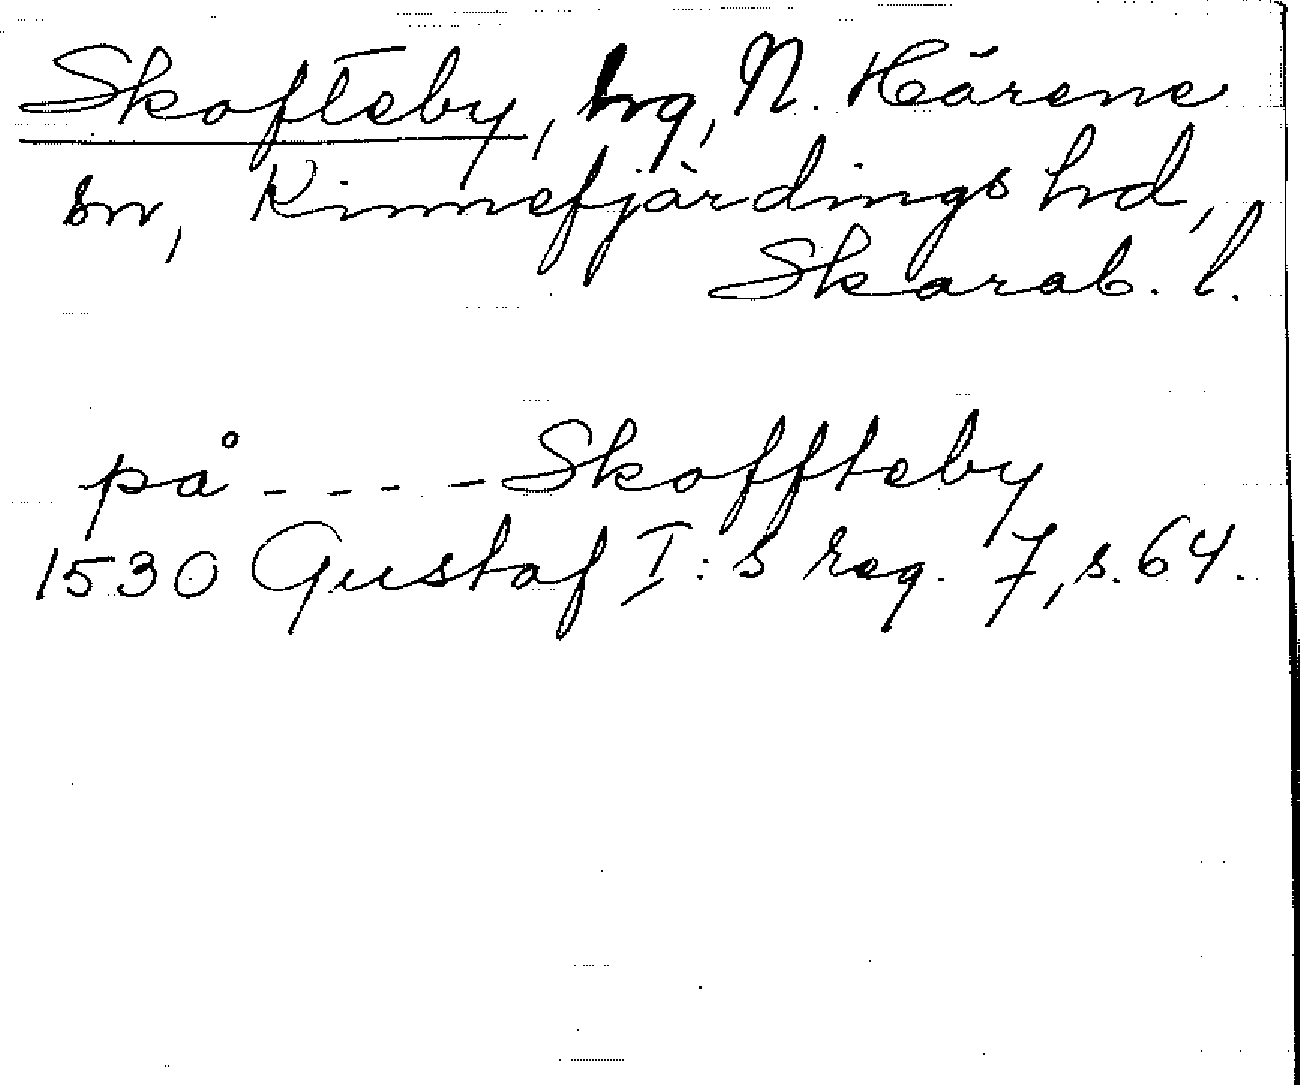 Skofteby, hg, N. Härene
sn, Kinnefjärdings hd,
Skarab. l.
på - - - - Skoffteby
1530 Gustaf I:s reg. 7, s. 64.